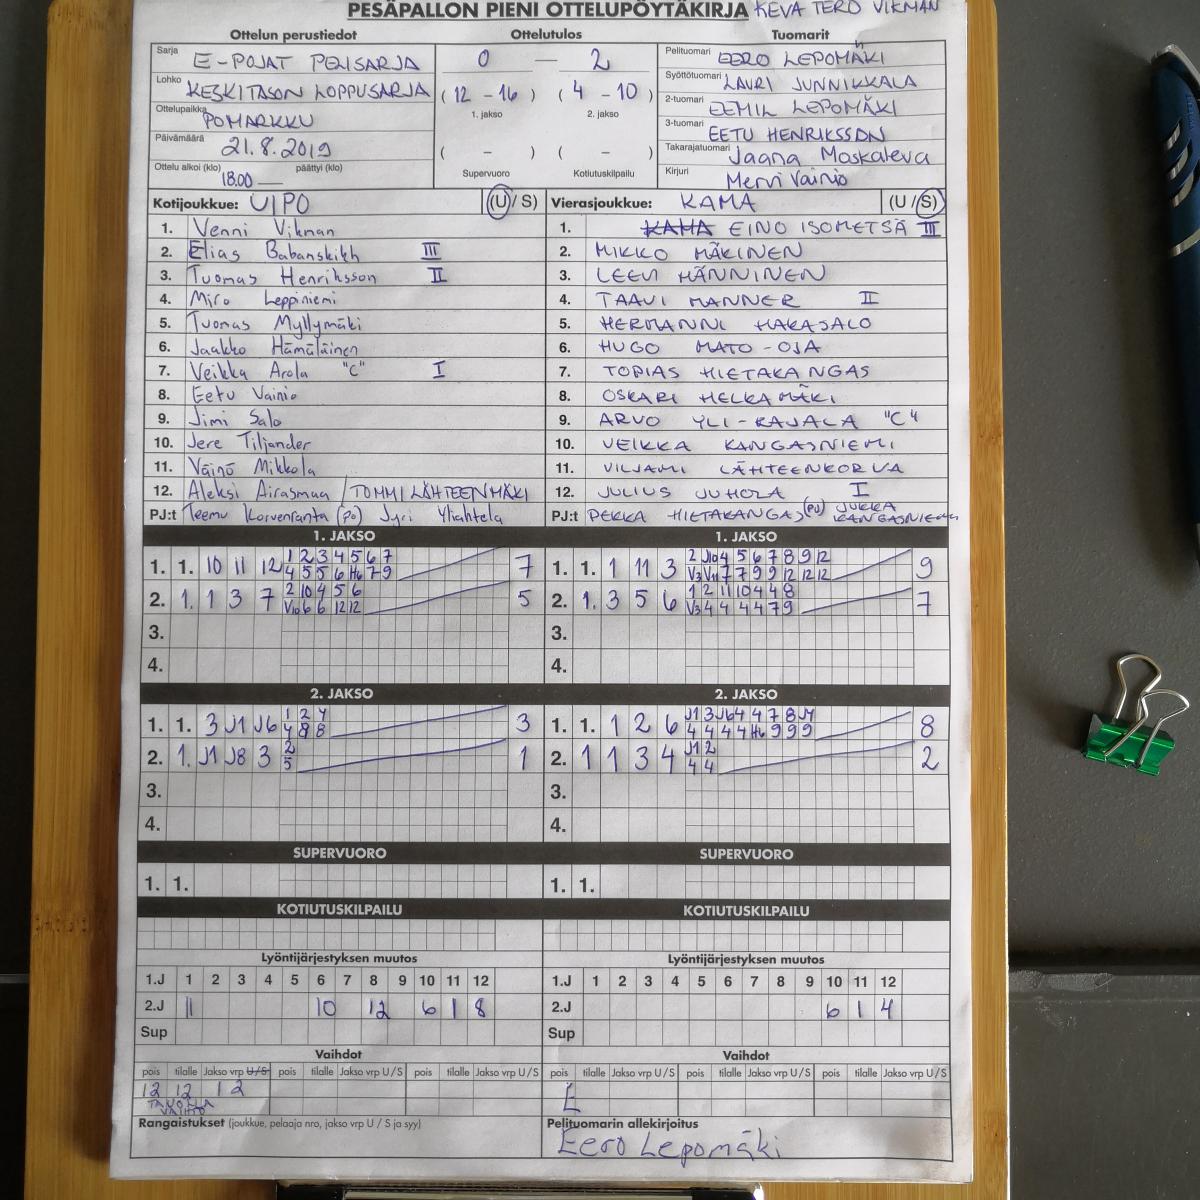 PESÄPALLON PIENI OTTELUPÖYTÄKIRJA KEVA TERO VIKMAN
Ottelun perustiedot Ottelutulos Tuomarit
Sarja E-POJAT PELISARJA 0 — 2 Pelituomari EERO LEPOMÄKI
Lohko KESKITASON LOPPUSARJA (12 - 16) (4 - 10) Syöttötuomari LAURI JUNNIKKALA
1. jakso 2. jakso
Ottelupaikka POMARKKU 2-tuomari EEMIL LEPOMÄKI
Päivämäärä 21.8.2019 3-tuomari EETU HENRIKSSON
( - ) ( - ) Takarajatuomari Jaana Moskaleva
Ottelu alkoi (klo) 18.00 päättyi (klo) Supervuoro Kotiutuskilpailu Kirjuri Mervi Vainio
Kotijoukkue: UIPO (U/S) Vierasjoukkue: KAMA (U/S)
1. Venni Vikman 1. KAMA EINO ISOMETSÄ III
2. Elias Babanskikh III 2. MIKKO MÄKINEN
3. Tuomas Henriksson II 3. LEEVI HÄNNINEN
4. Miro Leppiniemi 4. TAAVI MANNER II
5. Tuomas Myllymäki 5. HERMANNI HAKASALO
6. Jaakko Hämäläinen 6. HUGO MATO-OJA
7. Veikka Arola "C" I 7. TOPIAS HIETAKANGAS
8. Eetu Vainio 8. OSKARI HELKAMÄKI
9. Jimi Salo 9. ARVO YLI-RAJALA "C"
10. Jere Tiljander 10. VEIKKA KANGASNIEMI
11. Väinö Mikkola 11. VILJAMI LÄHTEENKORVA
12. Aleksi Airasmaa / TOMMI LÄHTEENMÄKI 12. JULIUS JUHOLA I
PJ:t Teemu Korvenranta (PJ) Jyri Yliahtela PJ:t PEKKA HIETAKANGAS (PJ) JUKKA KANGASNIEMI
1. JAKSO 1. JAKSO
1. 1. 10 11 12 1 2 3 4 5 6 7 7 1. 1. 1 11 3 2 J10 4 5 6 7 8 9 12 9
4 5 5 6 H6 7 9 V3 V11 7 7 9 9 12 12 12
2. 1. 1 3 7 2 10 4 5 6 5 2. 1. 3 5 6 1 2 11 10 4 4 8 7
V10 6 6 12 12 V3 4 4 4 4 7 9
3. 3.
4. 4.
2. JAKSO 2. JAKSO
1. 1. 3 J1 J6 1 2 4 3 1. 1. 1 2 6 J1 3 J6 4 4 7 8 J4 8
4 8 8 4 4 4 4 H6 9 9 9
2. 1. J1 J8 3 2 1 2. 1 1 3 4 J1 2 2
5 4 4
3. 3.
4. 4.
SUPERVUORO SUPERVUORO
1. 1. 1. 1.
KOTIUTUSKILPAILU KOTIUTUSKILPAILU
Lyöntijärjestyksen muutos Lyöntijärjestyksen muutos
1.J 1 2 3 4 5 6 7 8 9 10 11 12 1.J 1 2 3 4 5 6 7 8 9 10 11 12
2.J 11 10 12 6 1 8 2.J 6 1 4
Sup Sup
Vaihdot Vaihdot
pois tilalle Jakso vrp U/S pois tilalle Jakso vrp U/S pois tilalle Jakso vrp U/S pois tilalle Jakso vrp U/S pois tilalle Jakso vrp U/S pois tilalle Jakso vrp U/S
12 12 1 2 E
VAIHTO
Rangaistukset (joukkue, pelaaja nro, jakso vrp U / S ja syy) Pelituomarin allekirjoitus
Eero Lepomäki